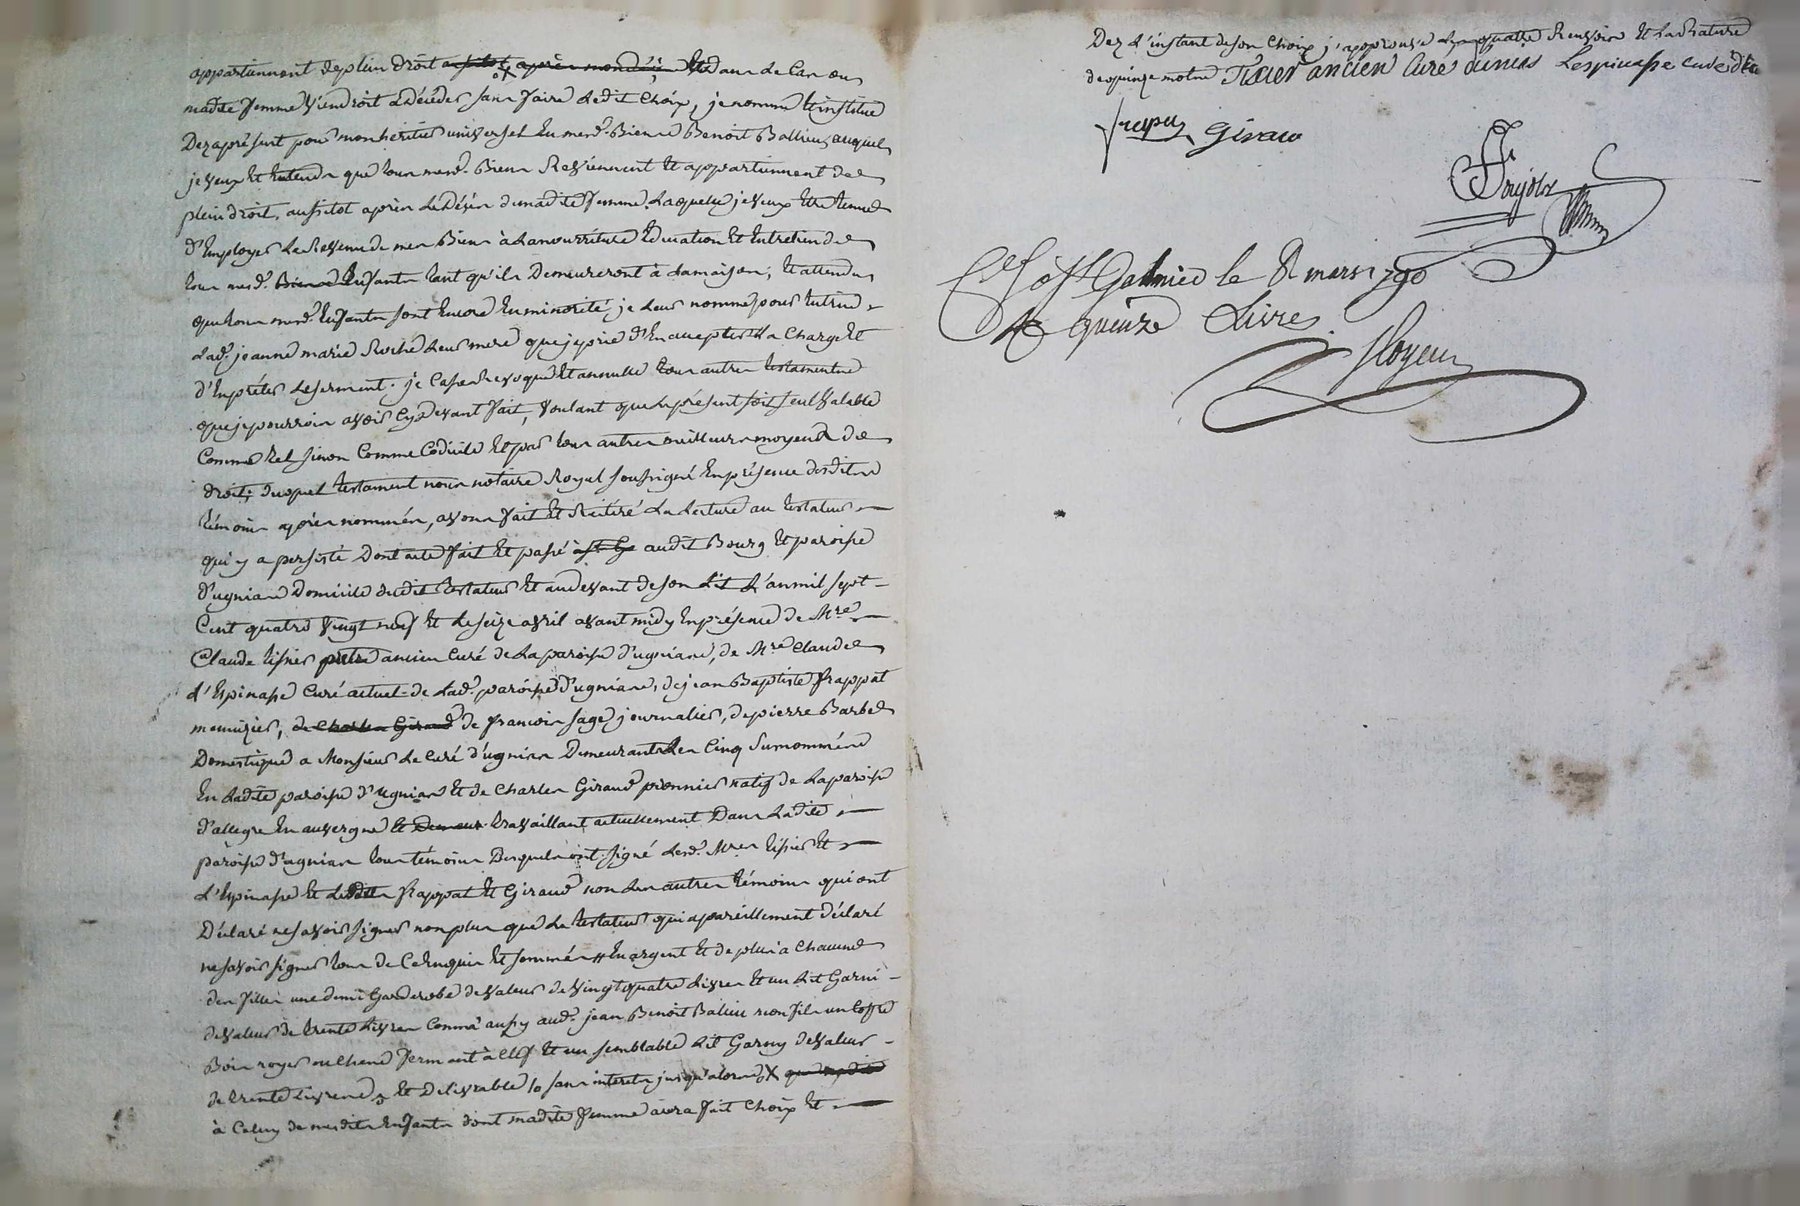 appartiennent de plein droit aussitot après mon décès Et dans Le Cas ou
madite femme viendroit a décéder sans faire Ledit Choix, je nomme Et institue
Dez aprésent pour mon heritier universel En mesd. Biens Benoit Ballieu, auquel
je veux Et Entends que tous mesd. Biens Reviennent Et appartiennent de
plein droit, aussitot après Le Décès de madite femme Laquelle je veux Etre tenue
d'Employer Le Revenu de mes Biens à La nourriture Education Et Entretien de
tous mesd. Biens Enfants tant qu'ils Demeureront à La maison, Et attendu
que tous mesd. Enfants sont Encore En minorité je Leur nomme pour tutrice
Lad. jeanne marie Roche Leur mere que je prie d'En accepter La Charge Et
d'En prêter Le serment. je Casse Revoque Et annulle tous autres testaments
que je pourrois avoir Cy devant fait, voulant que Le présent soit seul valable
Comme tel sinon Comme Codicile Et par tous autres meilleurs moyens de
droit; duquel testament nous notaire Royal soussigné En présence desdits
témoins après nommés, avons fait Et Réitéré La Lecture au testateur
qui y a persisté Dont acte fait Et passé audit Bourg Et paroisse
d'ugnias Domicile dudit testateur Et au devant de son Lit L'an mil sept
Cent quatre vingt neuf Et Le seize avril avant midy En présence de Mre
Claude tixier prêtre ancien Curé de La paroisse d'ugnias, de Mre Claude
L'Espinasse Curé actuel de Lad. paroisse d'ugnias, de jean Baptiste frappat
menuizier, de Charles Giraud de francois sage journalier, de pierre Barbe
Domestique a Monsieur Le Curé d'ugnias Demeurants Les Cinq surnommés
En Ladite paroisse d'ugnias Et de Charles Giraud pionnier natif de La paroisse
d'allegre En auvergne Et Demeur travaillant actuellement Dans Ladite
paroisse d'ugnias tous témoins Desquels ont signé Lesd. Mres tixier Et
L'Espinasse Et Lesdits frappat Et Giraud non Les autres témoins qui ont
Déclaré ne savoir signer non plus que Le testateur qui a pareillement déclaré
ne savoir signer tous de Ce Enquis Et sommés # En argent Et de plus a Chacune
des filles une demi Garderobe de valeur de vingt quatre Livres Et un Lit Garni
de valeur de trente Livres Comme aussy aud. jean Benoit Balieu mon fils un Coffre
Bois noyer ou Chene fermant à Clef Et un semblable Lit Garny de valeur
de trente Livres Et Délivrable sans interets jusqu'alors X
à Celuy de mesdits Enfants dont madite femme aura fait Choix Et
Dez L'instant de son Choix j'approuve Les quatre Renvois Et La Rature
de quinze mots Tixier ancien Curé dunias Lespinasse curé
frapa Giraud
Ctlé à St Galmier le 8 mars 1790
Rç quinze Livres